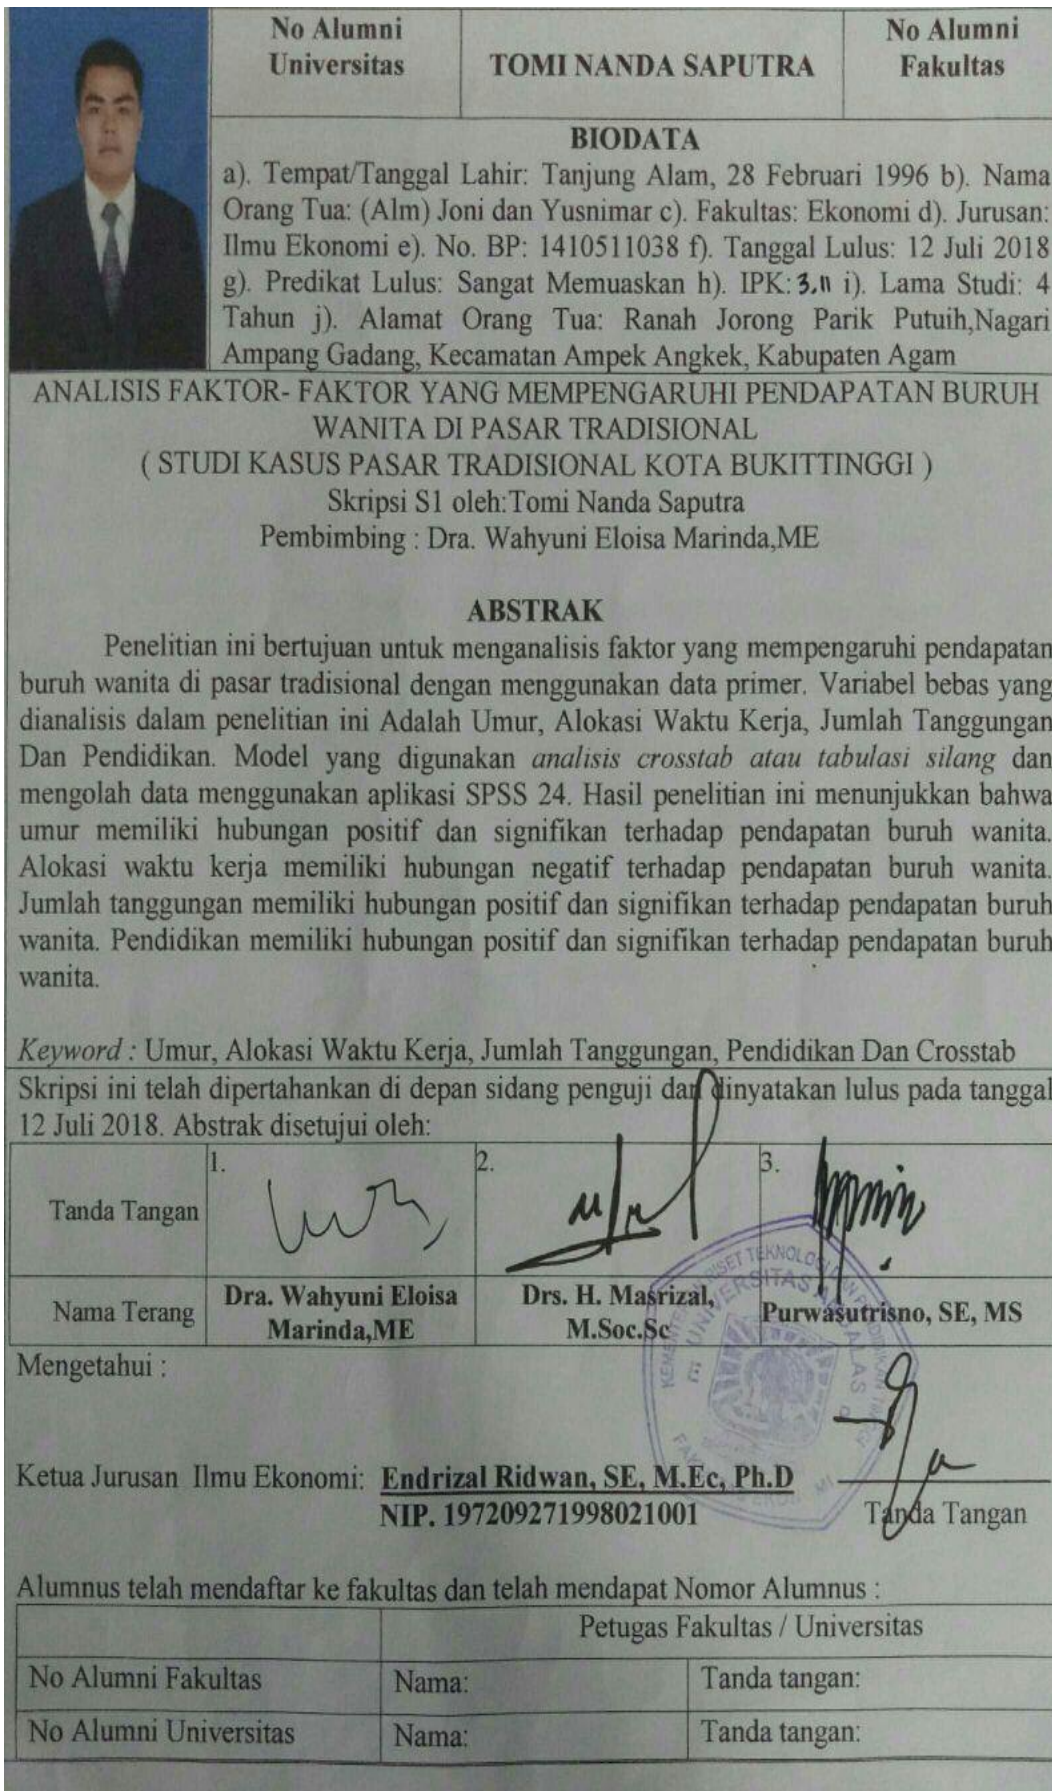 No Alumni
Universitas
TOMI NANDA SAPUTRA
No Alumni
Fakultas
BIODATA
a). Tempat/Tanggal Lahir: Tanjung Alam, 28 Februari 1996 b). Nama
Orang Tua: (Alm) Joni dan Yusnimar c). Fakultas: Ekonomi d). Jurusan:
Ilmu Ekonomi e). No. BP: 1410511038 f). Tanggal Lulus: 12 Juli 2018
g). Predikat Lulus: Sangat Memuaskan h). IPK: 3.11 i). Lama Studi: 4
Tahun j). Alamat Orang Tua: Ranah Jorong Parik Putuih,Nagari
Ampang Gadang, Kecamatan Ampek Angkek, Kabupaten Agam
ANALISIS FAKTOR- FAKTOR YANG MEMPENGARUHI PENDAPATAN BURUH
WANITA DI PASAR TRADISIONAL
( STUDI KASUS PASAR TRADISIONAL KOTA BUKITTINGGI )
Skripsi S1 oleh:Tomi Nanda Saputra
Pembimbing : Dra. Wahyuni Eloisa Marinda,ME
ABSTRAK
Penelitian ini bertujuan untuk menganalisis faktor yang mempengaruhi pendapatan
buruh wanita di pasar tradisional dengan menggunakan data primer. Variabel bebas yang
dianalisis dalam penelitian ini Adalah Umur, Alokasi Waktu Kerja, Jumlah Tanggungan
Dan Pendidikan. Model yang digunakan analisis crosstab atau tabulasi silang dan
mengolah data menggunakan aplikasi SPSS 24. Hasil penelitian ini menunjukkan bahwa
umur memiliki hubungan positif dan signifikan terhadap pendapatan buruh wanita.
Alokasi waktu kerja memiliki hubungan negatif terhadap pendapatan buruh wanita.
Jumlah tanggungan memiliki hubungan positif dan signifikan terhadap pendapatan buruh
wanita. Pendidikan memiliki hubungan positif dan signifikan terhadap pendapatan buruh
wanita.
Keyword : Umur, Alokasi Waktu Kerja, Jumlah Tanggungan, Pendidikan Dan Crosstab
Skripsi ini telah dipertahankan di depan sidang penguji dan dinyatakan lulus pada tanggal
12 Juli 2018. Abstrak disetujui oleh:
Tanda Tangan
1.
2.
3.
Nama Terang
Dra. Wahyuni Eloisa
Marinda,ME
Drs. H. Masrizal,
M.Soc.Sc
Purwasutrisno, SE, MS
KEMENTERIAN RISET TEKNOLOGI DAN PENDIDIKAN TINGGI
UNIVERSITAS ANDALAS
Mengetahui :
Ketua Jurusan Ilmu Ekonomi: Endrizal Ridwan, SE, M.Ec, Ph.D
NIP. 197209271998021001
Tanda Tangan
Alumnus telah mendaftar ke fakultas dan telah mendapat Nomor Alumnus :
Petugas Fakultas / Universitas
No Alumni Fakultas
Nama:
Tanda tangan:
No Alumni Universitas
Nama:
Tanda tangan: